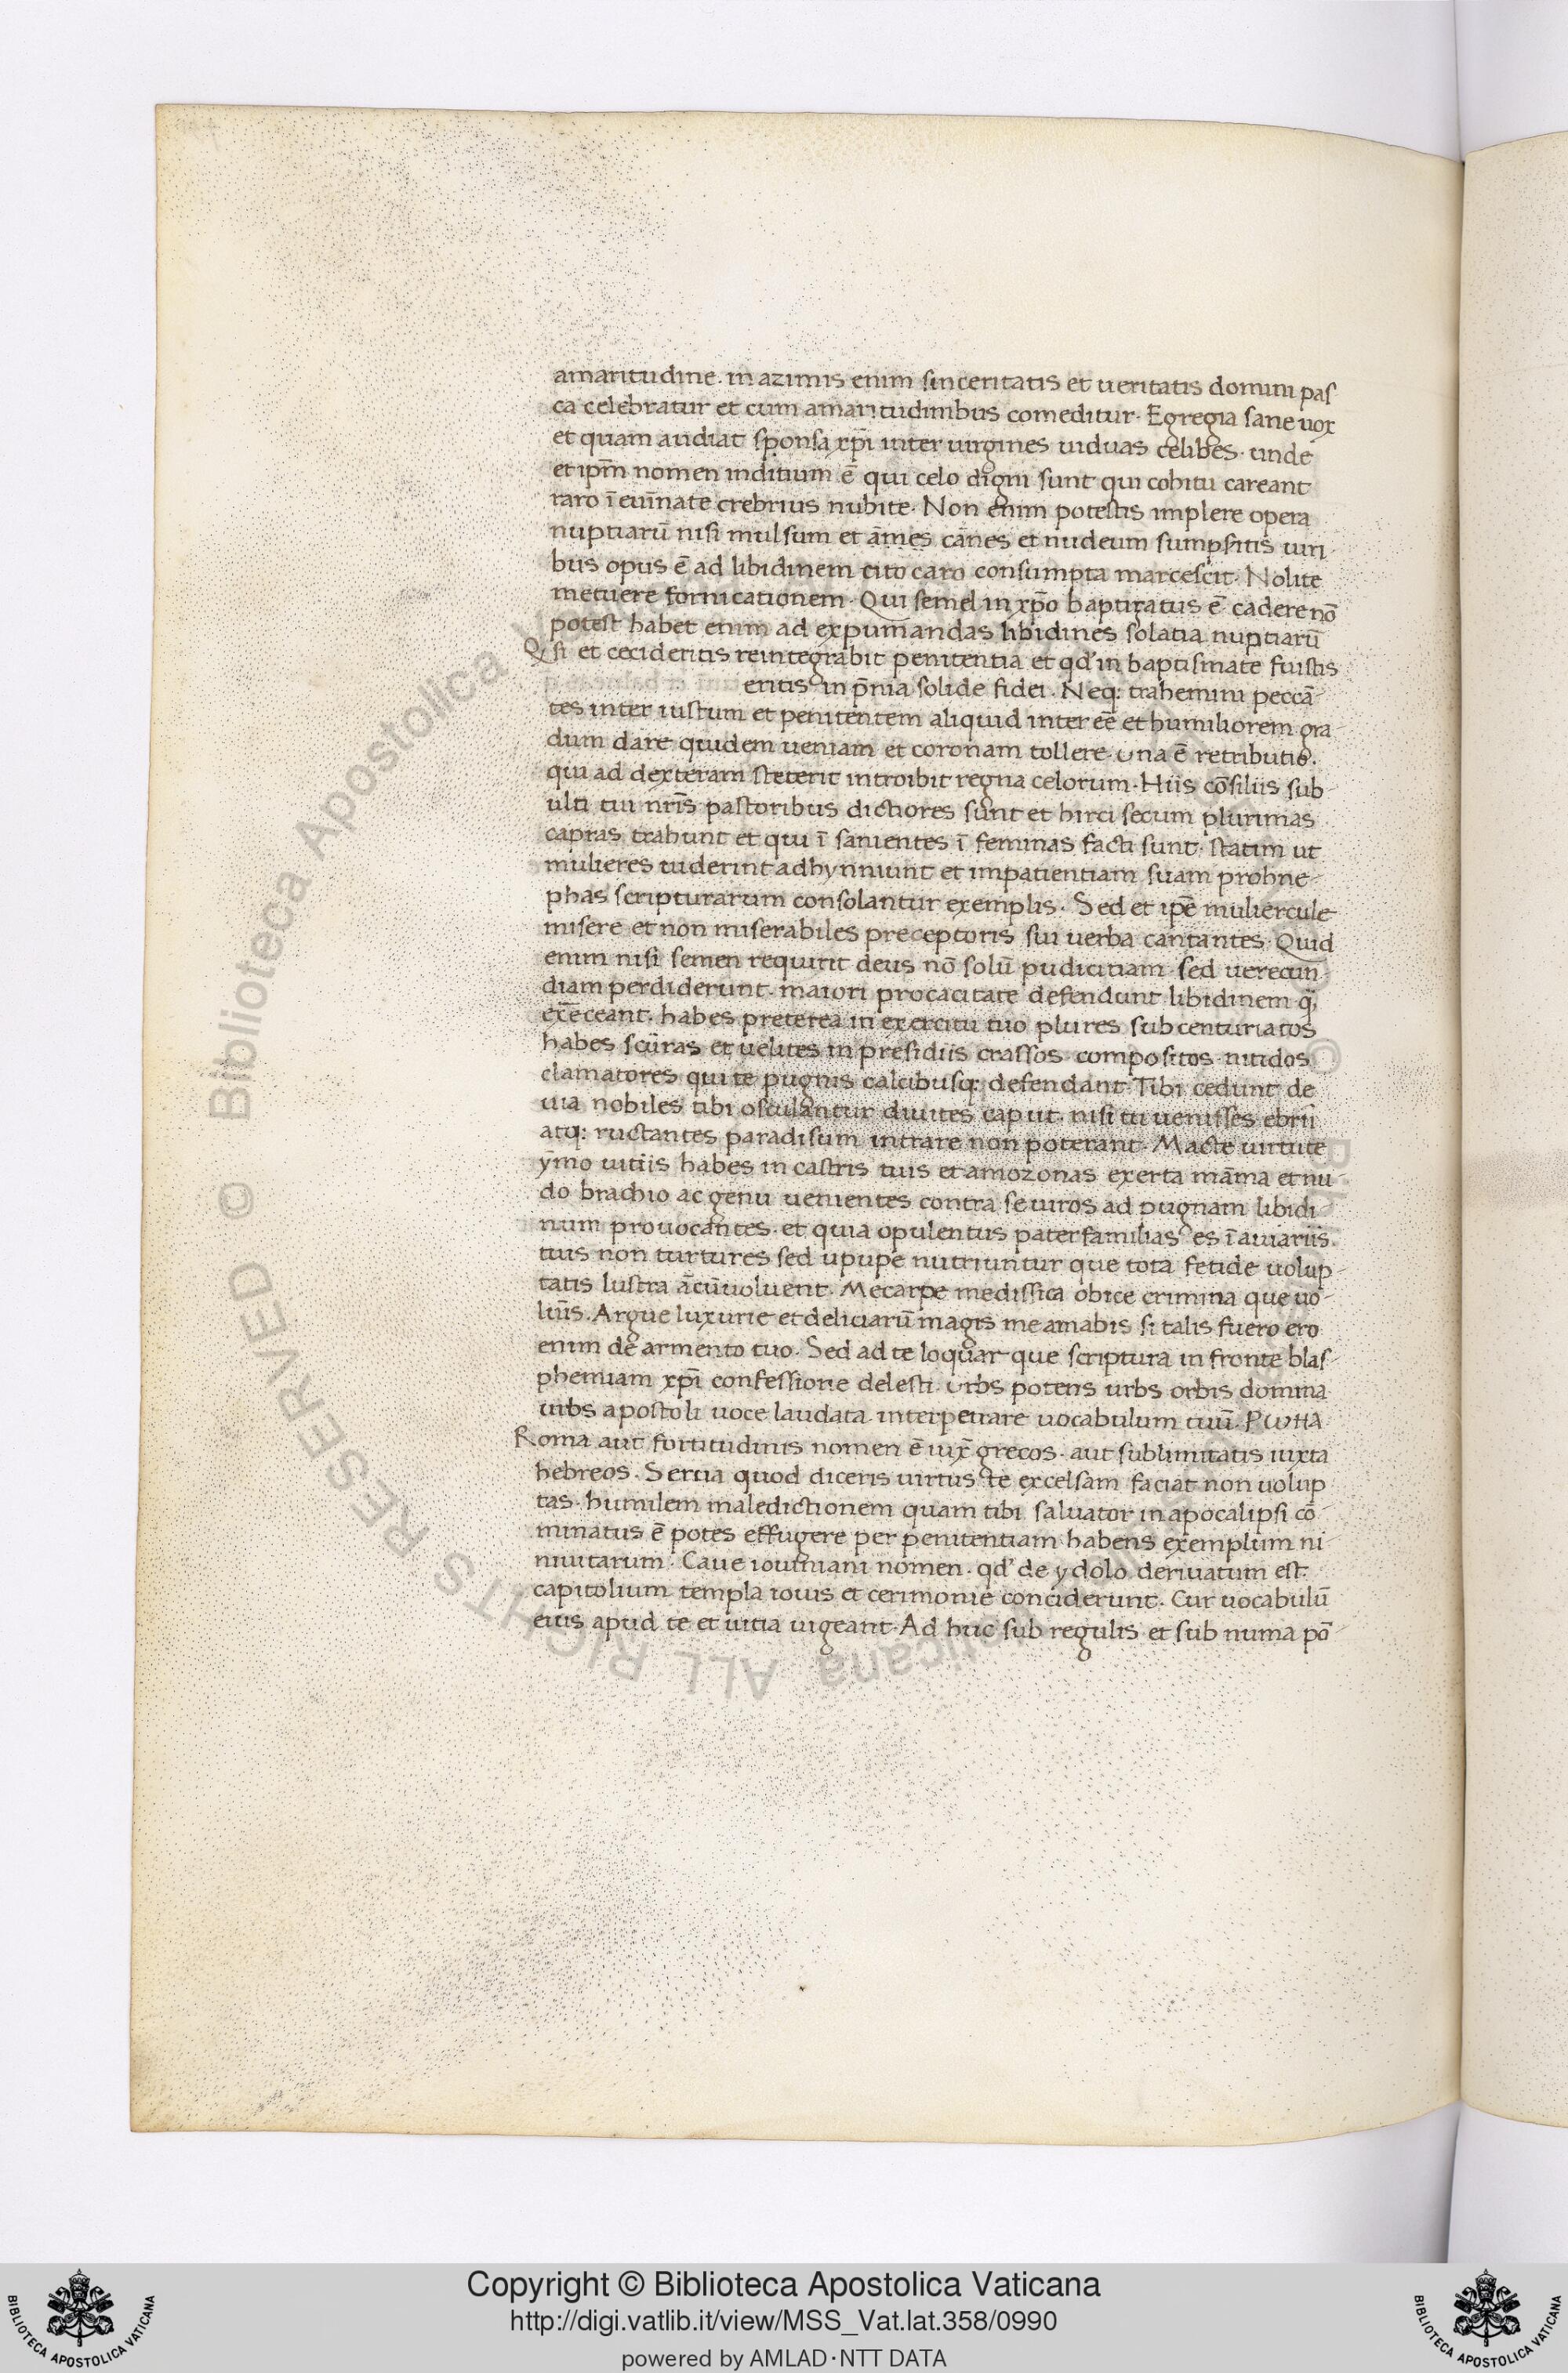 amaritudine. in azimis enim sinceritatis et ueritatis domini pas
ca celebratur et cum amaritudinibus comeditur. Egregia sane uox
et quam audiat sponsa xp̄i inter uirgines uiduas celibes. unde
et ip̄m nomen inditum ē qui celo digni sunt qui cohitu careant
raro ī euīnate crebrius nubite. Non enim potestis implere opera
nuptiarū nisi mulsum et āmes cānes et nudeum sumpsitis uiri
bus opus ē ad libidinem cito caro consumpta marcescit. Nolite
metuere fornicationem. Qui semel in xp̄o baptizatus ē cadere nō
potest habet enim ad expumandas libidines solatia nuptiarū
Q si et cecideritis reintegrabit penitentia et qd' in baptismate fuistis
eritis in p̄nia solide fidei. Neq: trahemini peccā-
tes inter iustum et penitentem aliquid inter eē et humiliorem gra-
dum dare quidem ueniam et coronam tollere. una ē retributio.
qui ad dexteram steterit introibit regna celorum. Hiis cōsiliis sub-
ulti tui nr̄is pastoribus dictiores sunt et hirci secum plurimas
capras trahunt et qui ī sanientes ī feminas facti sunt. statim ut
mulieres uiderint adhynniunt et impatientiam suam prohne-
phas scripturarum consolantur exemplis. Sed et ip̄e muliercule
misere et non miserabiles preceptoris sui uerba cantantes. Quid
enim nisi semen requirit deus nō solū pudicitiam. sed uerecun-
diam perdiderunt. maiori procacitate defendunt libidinem q̄
exēceant. habes preterea in exercitu tuo plures subcenturiatos
habes scūras et uelites in presidiis crassos. compositos. nitidos
clamatores qui te pugnis calcibusq: defendant. Tibi cedunt de
uia nobiles tibi osculantur diuites caput. nisi tu uenisses ebrii
atq: ructantes paradisum intrare non poterant. Macte uirtute
ȳmo uitiis habes in castris tuis et amozonas exerta māma et nu-
do brachio ac genu uenientes contra se uiros ad pugnam libidi
num prouocantes. et quia opulentus paterfamilias es ī auiariis.
tuis non turtures sed upupe nutriuntur que tota fetide uolup-
tatis lustra ācūuoluent. Mecarpe medissica obice crimina que uo-
liūs. Argue luxurie et deliciarū magis me amabis si talis fuero ero
enim de armento tuo. Sed ad te loquar que scriptura in fronte blas-
phemiam xp̄i confessione delesti. urbs potens urbs orbis domina
urbs apostoli uoce laudata. interpetrare uocabulum tuū. ΡωΗΑ
Roma aut fortitudinis nomen ē iux̄ grecos. aut sublimitatis iuxta
hebreos. Sertia quod diceris uirtus te excelsam faciat non uolup
tas. humilem maledictionem quam tibi saluator in apocalipsi cō-
minatus ē potes effugere per penitentiam habens exemplum ni
niuitarum. Caue iouiniani nomen. qd' de ydolo deriuatum est.
capitolium templa iouis et cerimonie conciderunt. Cur uocabulū
eius apud te et uitia uigeant. Ad huc sub regulis et sub numa pō-
Copyright © Biblioteca Apostolica Vaticana
http://digi.vatlib.it/view/MSS_Vat.lat.358/0990
powered by AMLAD·NTT DATA
BIBLIOTECA APOSTOLICA VATICANA
BIBLIOTECA APOSTOLICA VATICANA
© Biblioteca Apostolica Vaticana ALL RIGHTS RESERVED